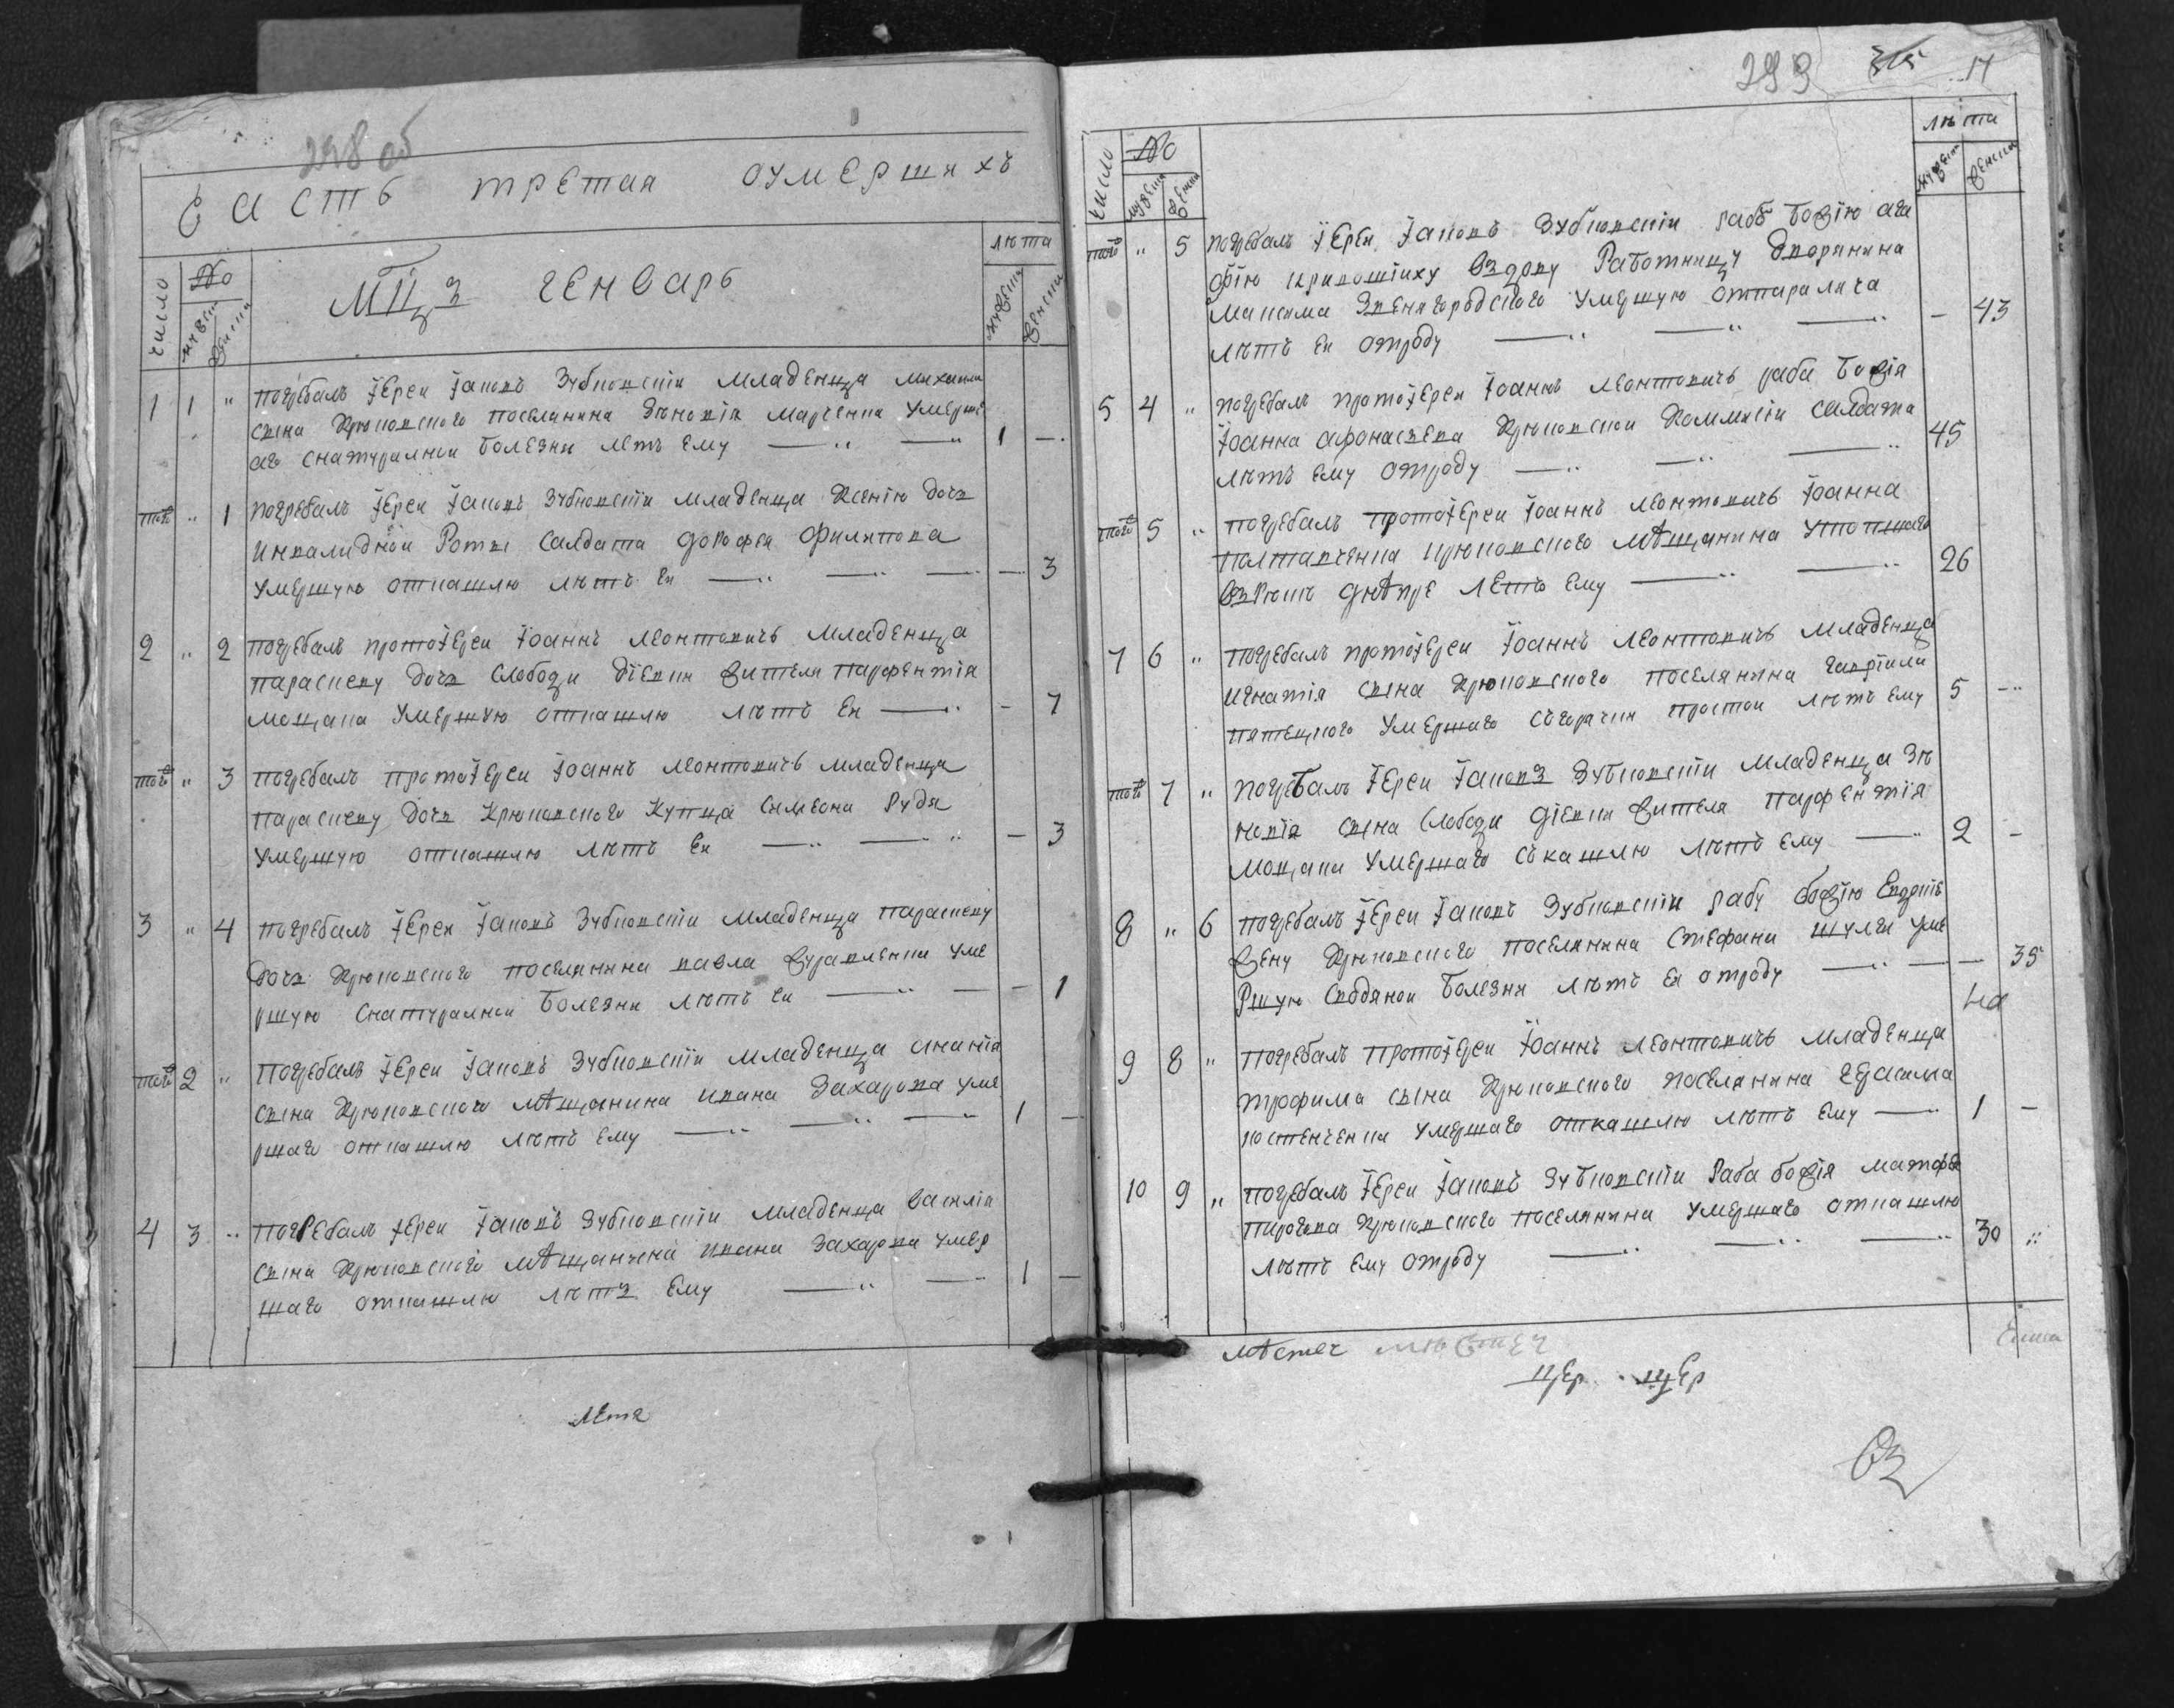 298 об
Часть третая оумершихъ
число № мужеска женска Мцъ генварь лѣта мужеска женска
1 1 " погребалъ Іереи Іаковъ Зубковскіи младенца михаила
сына Крюковского поселянина Зѣновія марченка умерш
аго снатуралнои болезни летъ ему 1 —
того " 1 погребалъ Іереи Іаковъ Зубковскіи младенца Ксенію дочъ
инвалиднои Роты салдата дорофея Филипова
умершую откашлю лѣтъ еи — 3
2 " 2 погребалъ протоІереи Іоаннъ леонтовичъ младенца
параскеву дочъ слободи дѣевки жителя парфентія
моцака умершую откашлю лѣтъ еи - 7
того " 3 погребалъ протоІереи Іоаннъ леонтовичъ младенца
параскеву дочъ Крюковского купца симеона Рудя
умершую откашлю лѣтъ еи — 3
3 " 4 погребалъ Іереи Іаковъ Зубковскіи младенца параскеву
дочъ Крюковского поселянина павла журавленка уме
ршую снатуралнои болезни лѣтъ еи — 1
того 2 " погребалъ Іереи Іаковъ Зубковскіи младенца ананія
сына Крюковского мѣщанина ивана Захарова уме
ршаго откашлю лѣтъ ему 1 —
4 3 " погребалъ Іереи Іаковъ Зубковскіи младенца василія
сына Крюковского мѣщанина ивана Захарова умер
шаго откашлю лѣтъ ему 1 —
лета
299 17
число № мужеска женска лѣта мужеска женска
того " 5 погребалъ Іереи Іаковъ Зубковскіи рабу божію ага
фію кривошіику вздову Работницу дворянина
максима Звенигородского умершую отпаралича
лѣтъ еи отроду - 43
5 4 " погребалъ протоІереи Іоаннъ леонтовичъ раба божія
Іоанна афонасъева Крюковскои Коммисіи салдата
лѣтъ ему отроду 45
того 5 " погребалъ протоІереи Іоаннъ леонтовичъ Іоанна
полтавченка крюковского мѣщанина утопшаго
взРѣкѣ днѣпре летъ ему 26
7 6 " погребалъ протоІереи Іоаннъ леонтовичъ младенца
игнатія сына Крюковского поселянина гавріила
пятецкого умершаго съгорячки простои лѣтъ ему 5 -
того 7 " погребалъ Іереи Іаковъ Зубковскіи младенца Зѣ
новія сына слободи діевки жителя парфентія
моцака умершаго съкашлю лѣтъ ему 2 -
8 " 6 погребалъ Іереи Іаковъ Зубковскіи рабу божію Евдокѣ
жену Крюковского поселянина стефана шулги уме
Ршую сводянои болезни лѣтъ еи отроду — 35
на
9 8 " погребалъ протоІереи Іоаннъ леонтовичъ младенца
трофима сына Крюковского поселянина герасима
костенченка умершаго откашлю лѣтъ ему 1 —
10 9 " погребалъ Іереи Іаковъ Зубковскіи Раба божія матфѣ
пирогова Крюковского поселянина умершаго откашлю
лѣтъ ему отроду 30 "
мѣстеч мѣстеч
цер цер
въ